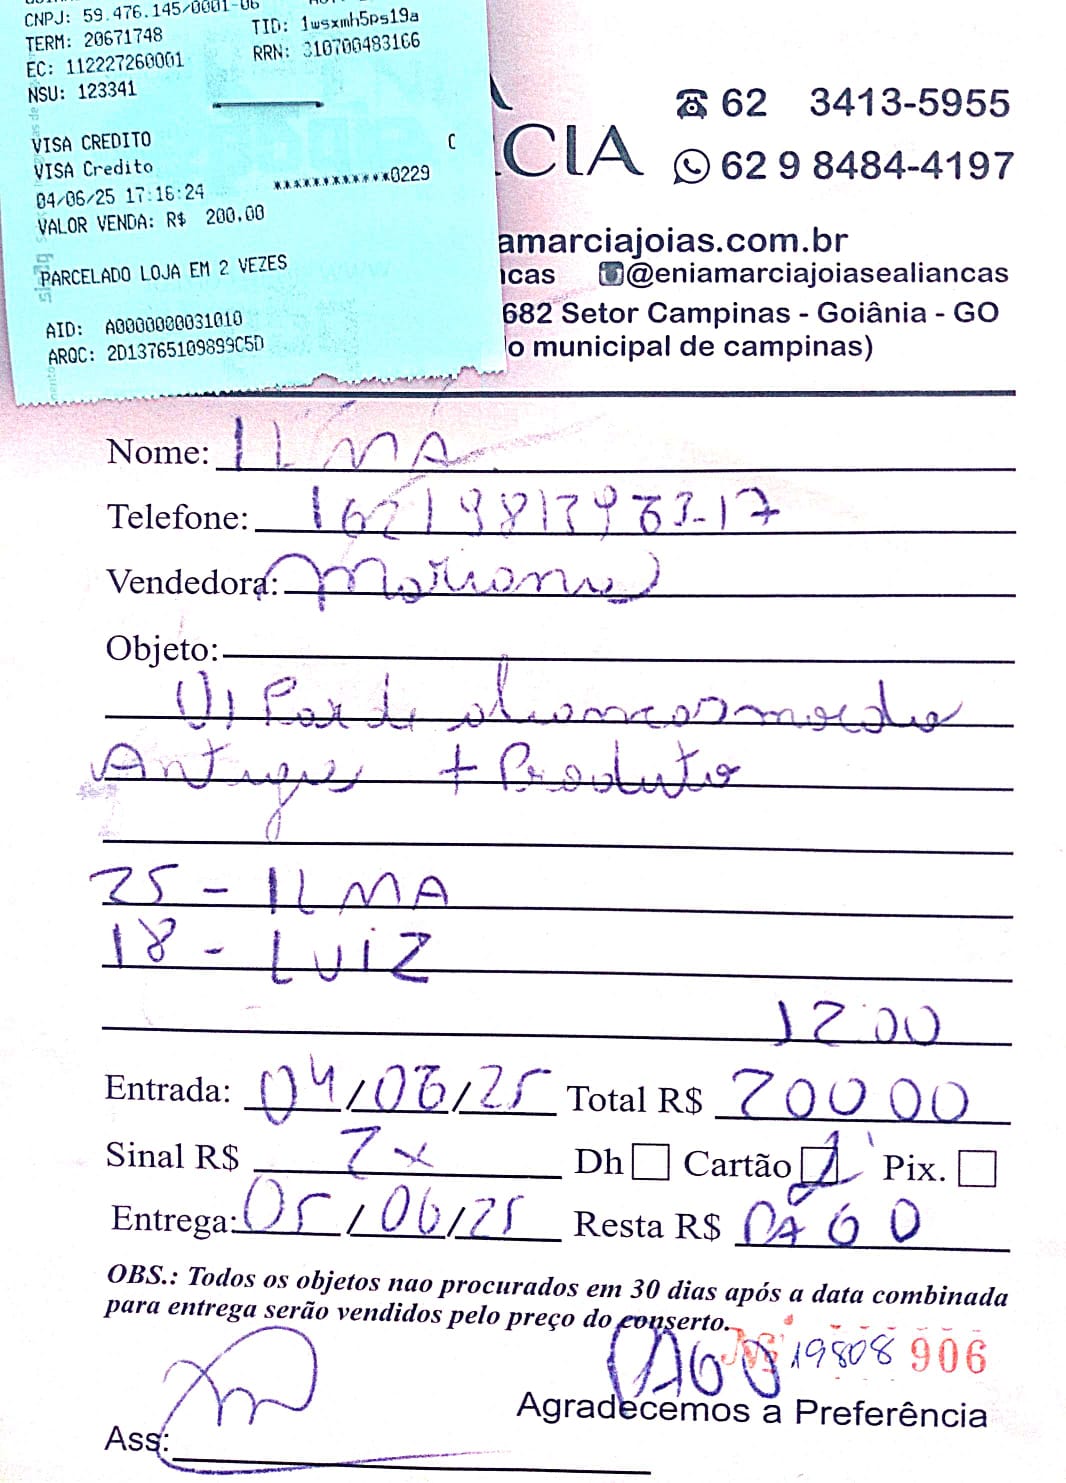 CNPJ: 59.476.145/0001-06
TERM: 20671748 TID: 1wsxmh5ps19a
EC: 112227260001 RRN: 310700483166
NSU: 123341
VISA CREDITO C
VISA Credito
04/06/25 17:16:24 ************0229
VALOR VENDA: R$ 200,00
PARCELADO LOJA EM 2 VEZES
AID: A0000000031010
ARQC: 2D13765109899C5D
CIA
62 3413-5955
62 9 8484-4197
amarciajoias.com.br
cas @eniamarciajoiasealiancas
682 Setor Campinas - Goiânia - GO
o municipal de campinas)
Nome: ILMA
Telefone:
Vendedora: Mariana
Objeto:
01 Par de aliancas moeda
Antigue + Produto
25 - ILMA
18 - LUIZ
1200
Entrada: 04/06/25 Total R$ 200 00
Sinal R$ 2x Dh Cartão Pix.
Entrega: 05/06/25 Resta R$ PAGO
OBS.: Todos os objetos nao procurados em 30 dias após a data combinada
para entrega serão vendidos pelo preço do conserto.
PAGO Nº 19808 906
Agradecemos a Preferência
Ass: